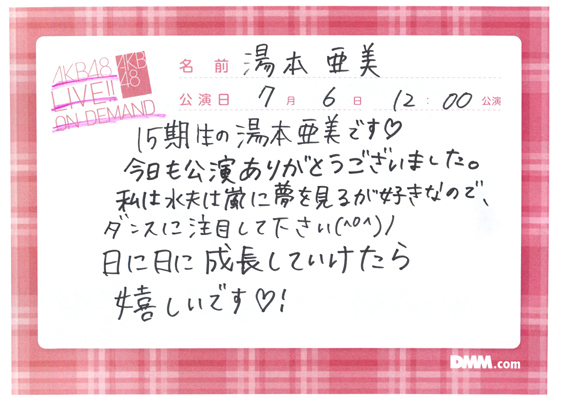 AKB48
LIVE!!
ON DEMAND
AKB
48
名前 湯本 亜美
公演日 7月 6日 12:00公演
15期生の湯本亜美です♡
今日も公演ありがとうございました。
私は水夫は嵐に夢を見るが好きなので、
ダンスに注目して下さい(^o^)/
日に日に成長していけたら
嬉しいです♡!
DMM.com